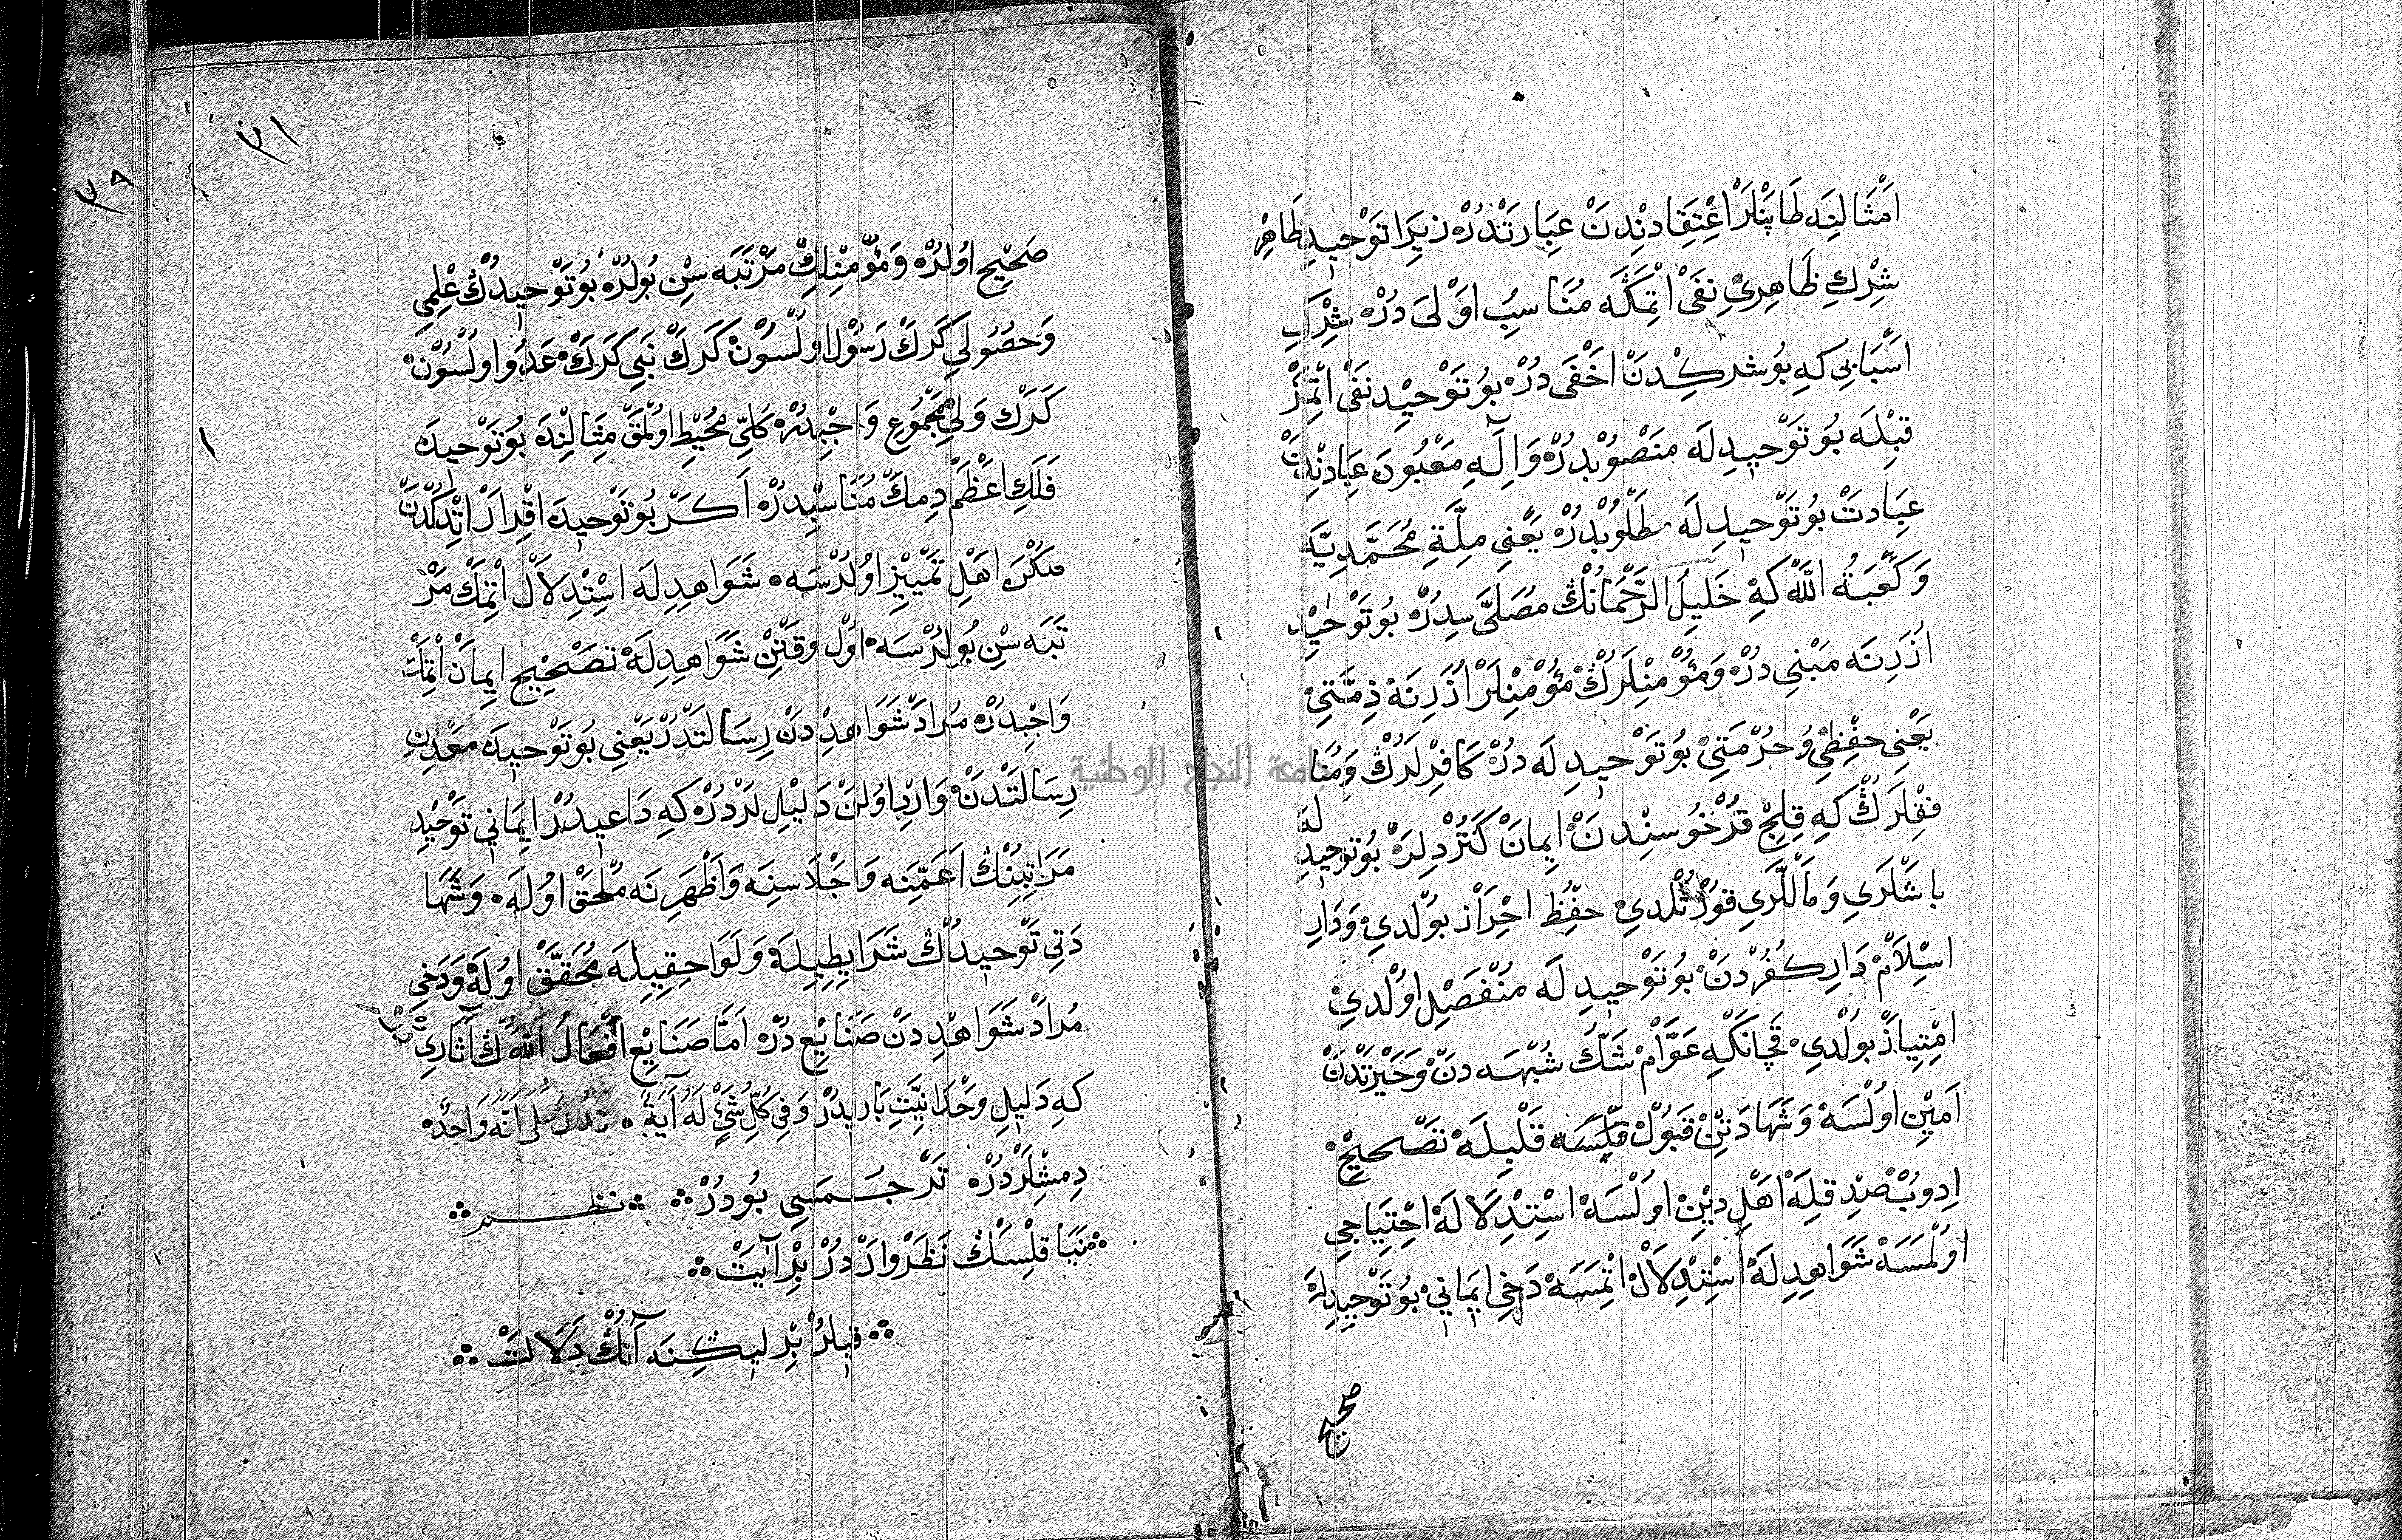 اَمْثَالِنَه طَاپَنْلَرْ اِعْتِقَادِنْدِنْ عِبَارَتْدُرْ زِيرَا تَوْحِيدِ ظَاهِرْ
شِرْكِ ظَاهِرِيْ نَفَىْ اتْمَكَه مُنَاسِبْ اَوْلَى دُرْ شِرْكِ
اَسْبَابِي كَه بُو شِركِدَنْ اَخْفَى دُرْ بُو تَوْحِيْد نَفَىْ اتْمَزْ
قِبْلَه بُو تَوْحِيدِلَه مَنْصُوبْدُرْ وَاِلٓهِ مَعْبُودَ عِبَادِنْدَنْ
عِبَادَتْ بُو تَوْحِيدِلَه طَلُوبْدُرْ يَعْنِي مِلَّةِ مُحَمَّدِيَّه
وَكَعْبَةُ اللّٰه كَه خَلِيلُ الرَّحْمَانُكْ مُصَلَّى سِدُرْ بُو تَوْحِيْد
اُزَرِنَه مَبْنِي دُرْ وَمُؤْمِنْلَرُكْ مُؤْمِنْلَرْ اُزَرِنَه ذِمَّتِيْ
يَعْنِي حِفْظِيْ وُحُرْمَتِيْ بُو تَوْحِيدِلَه دُرْ كَافِرْلَرُكْ وَمُنَا
فِقْلَرُكْ كَه قِلِجْ قُرْخُوسِنْدَنْ اِيمَانْ كَتُرْدِلَرْ بُو تَوْحِيدِ لَه
بَاشْلَرِي وَمَاللَّرِي قُورْتُلْدِي حِفْظِ احْرَازْ بُولْدِي وَدَارِ
اسْلَامْ دَارِ كُفُرْدَنْ بُو تَوْحِيدِلَه مُنْفَصِلْ اوُلْدِي
امْتِيَازْ بُولْدِي قَچَانْكَه عَوَامْ شَكّ شُبْهَه دَنْ وَحَيْرَتْدَنْ
اَمِيْن اوُلْسَه وَشَهَادَتِنْ قَبُولْ قِلْسَه قَلْبِلَه تَصْحِيحْ
اِدُوبْ صِدْقِلَه اَهْلِ دِيْن اوُلْسَه اسْتِدْلَالَه احْتِيَاجِي
اوُلْمَسَه شَوَاهِدِلَه اسْتِدْلَالْ اتْمِسَه دَخِي اِيمَانِي بُو تَوْحِيدِلَه
صحيح
صَحِيْح اوُلُدُرْ وَمُؤْمِنْلِكْ مَرْتَبَه سِنْ بُولُدُرْ بُو تَوْحِيدُكْ عِلْمِي
وَحُصُولِي كَرَكْ رَسُولْ اوُلْسُونْ كَرَكْ نَبِي كَرَكْ عَدُو اوُلْسُونْ
كَرَكْ وَلِي مَجْمُوعِ وَاجِبْدُرْ كُلِّي مُحِيْطِ اوُلْمَقْ مِثَالِنْدَه بُو تَوْحِيدَه
فَلَكِ اعْظَمْ دِمَكْ مُنَاسِبْدُرْ اَكَرْ بُو تَوْحِيدَه اقْرَارْ اتْدِكْدَنْ
صكْرَه اَهْلِ تَمْيِيْز اوُلُرْسَه شَوَاهِدِلَه اسْتِدْلَالْ اتْمَكْ مَرْ
تَبَه سِنْ بُولُرْسَه اوُلْ وَقْتِنْ شَوَاهِدِلَه تَصْحِيْح اِيمَانْ اتْمَكْ
وَاجِبْدُرْ مُرَادْ شَوَاهِدْ دَنْ رِسَالَتْدُرْ يَعْنِي بُو تَوْحِيدَه مَعْدِنِ
رِسَالَتْدَنْ وَارِدْ اوُلَنْ دَلِيْللَرْدُرْ كَه دَاعِيدُرْ اِيمَانِي تَوْحِيْدِ
مَرَاتِبِنُكْ اَعَمِّنَه وَاجْلَاسِنَه وَاَظْهَرِنَه مُلْحَقْ اوُلَه وَشَهَا
دَتِي تَوْحِيدُكْ شَرَايِطِيلَه وَلَوَاحِقِيلَه مُحَقَّقْ اوُلَه وَدَخِي
مُرَادْ شَوَاهِدْ دَنْ صَنَايِعْ دُرْ اَمَّا صَنَايِعْ اَفْعَالُ اللّٰهْكْ آثَارِيْ
كَه دَلِيلِ وَحْدَانِيَّتِ بَارِيدُرْ وَفِي كُلِّ شَيْءٍ لَهُ آيَةٌ تَدُلُّ عَلَى اَنَّهُ وَاحِدٌ
دِمِشْلَرْدُرْ تَرْجُمَسِي بُودُرْ نظم
نَيَا قِلْسَكْ نَظَرْ وَارْدُرْ بِرْ آيَتْ
قِيلُرْ بِرْلِيكِنَه آنُكْ دَلَالَتْ
جامعة النجاح الوطنية